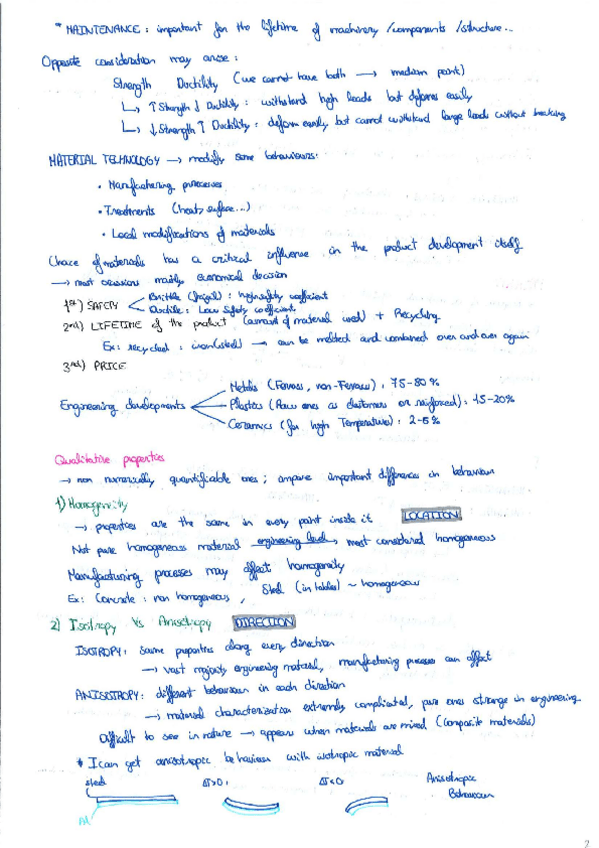 * MAINTENANCE: important for the lifetime of machinery /components /structure...
Opposite consideration may arise:
Strength Ductility (we cannot have both → medium point)
↳ ↑Strength ↓ Ductility: withstand high loads but deforms easily
↳ ↓Strength ↑ Ductility: deform easily but cannot withstand large loads without breaking
MATERIAL TECHNOLOGY → modify some behaviours:
• Manufacturing processes
• Treatments (heat, surface...)
• Local modifications of materials
Choice of materials has a critical influence in the product development itself
→ most occasions mainly economical decision
1st) SAFETY
Brittle (fragil): high safety coefficient
Ductile: Low Safety coefficient
2nd) LIFETIME of the product (amount of material used) + Recycling
Ex: recycled: iron(steel) → can be melted and combined over and over again
3rd) PRICE
Metals (Ferrous, non-Ferrous): 75-80%
Engineering developments
Plastics (Raw ones as elastomers or reinforced): 15-20%
Ceramics (for high Temperature): 2-5%
Qualitative properties
→ non numerically quantifiable ones; compare important differences in behaviour
1) Homogeneity
→ properties are the same in every point inside it LOCATION
Not pure homogeneous material engineering level, most considered homogeneous
Manufacturing processes may affect homogeneity
Ex: Concrete: non homogeneous, Steel (in tables) ~ homogeneous
2) Isotropy Vs Anisotropy DIRECTION
ISOTROPY: same properties along every direction
→ vast majority engineering material, manufacturing processes can affect
ANISOTROPY: different behaviour in each direction
→ material characterization extremely complicated, pure ones strange in engineering
Difficult to see in nature → appears when materials are mixed (composite materials)
* I can get anisotropic behaviour with isotropic material
steel ΔT>0: ΔT<0 Anisotropic
Behaviour
Al
2